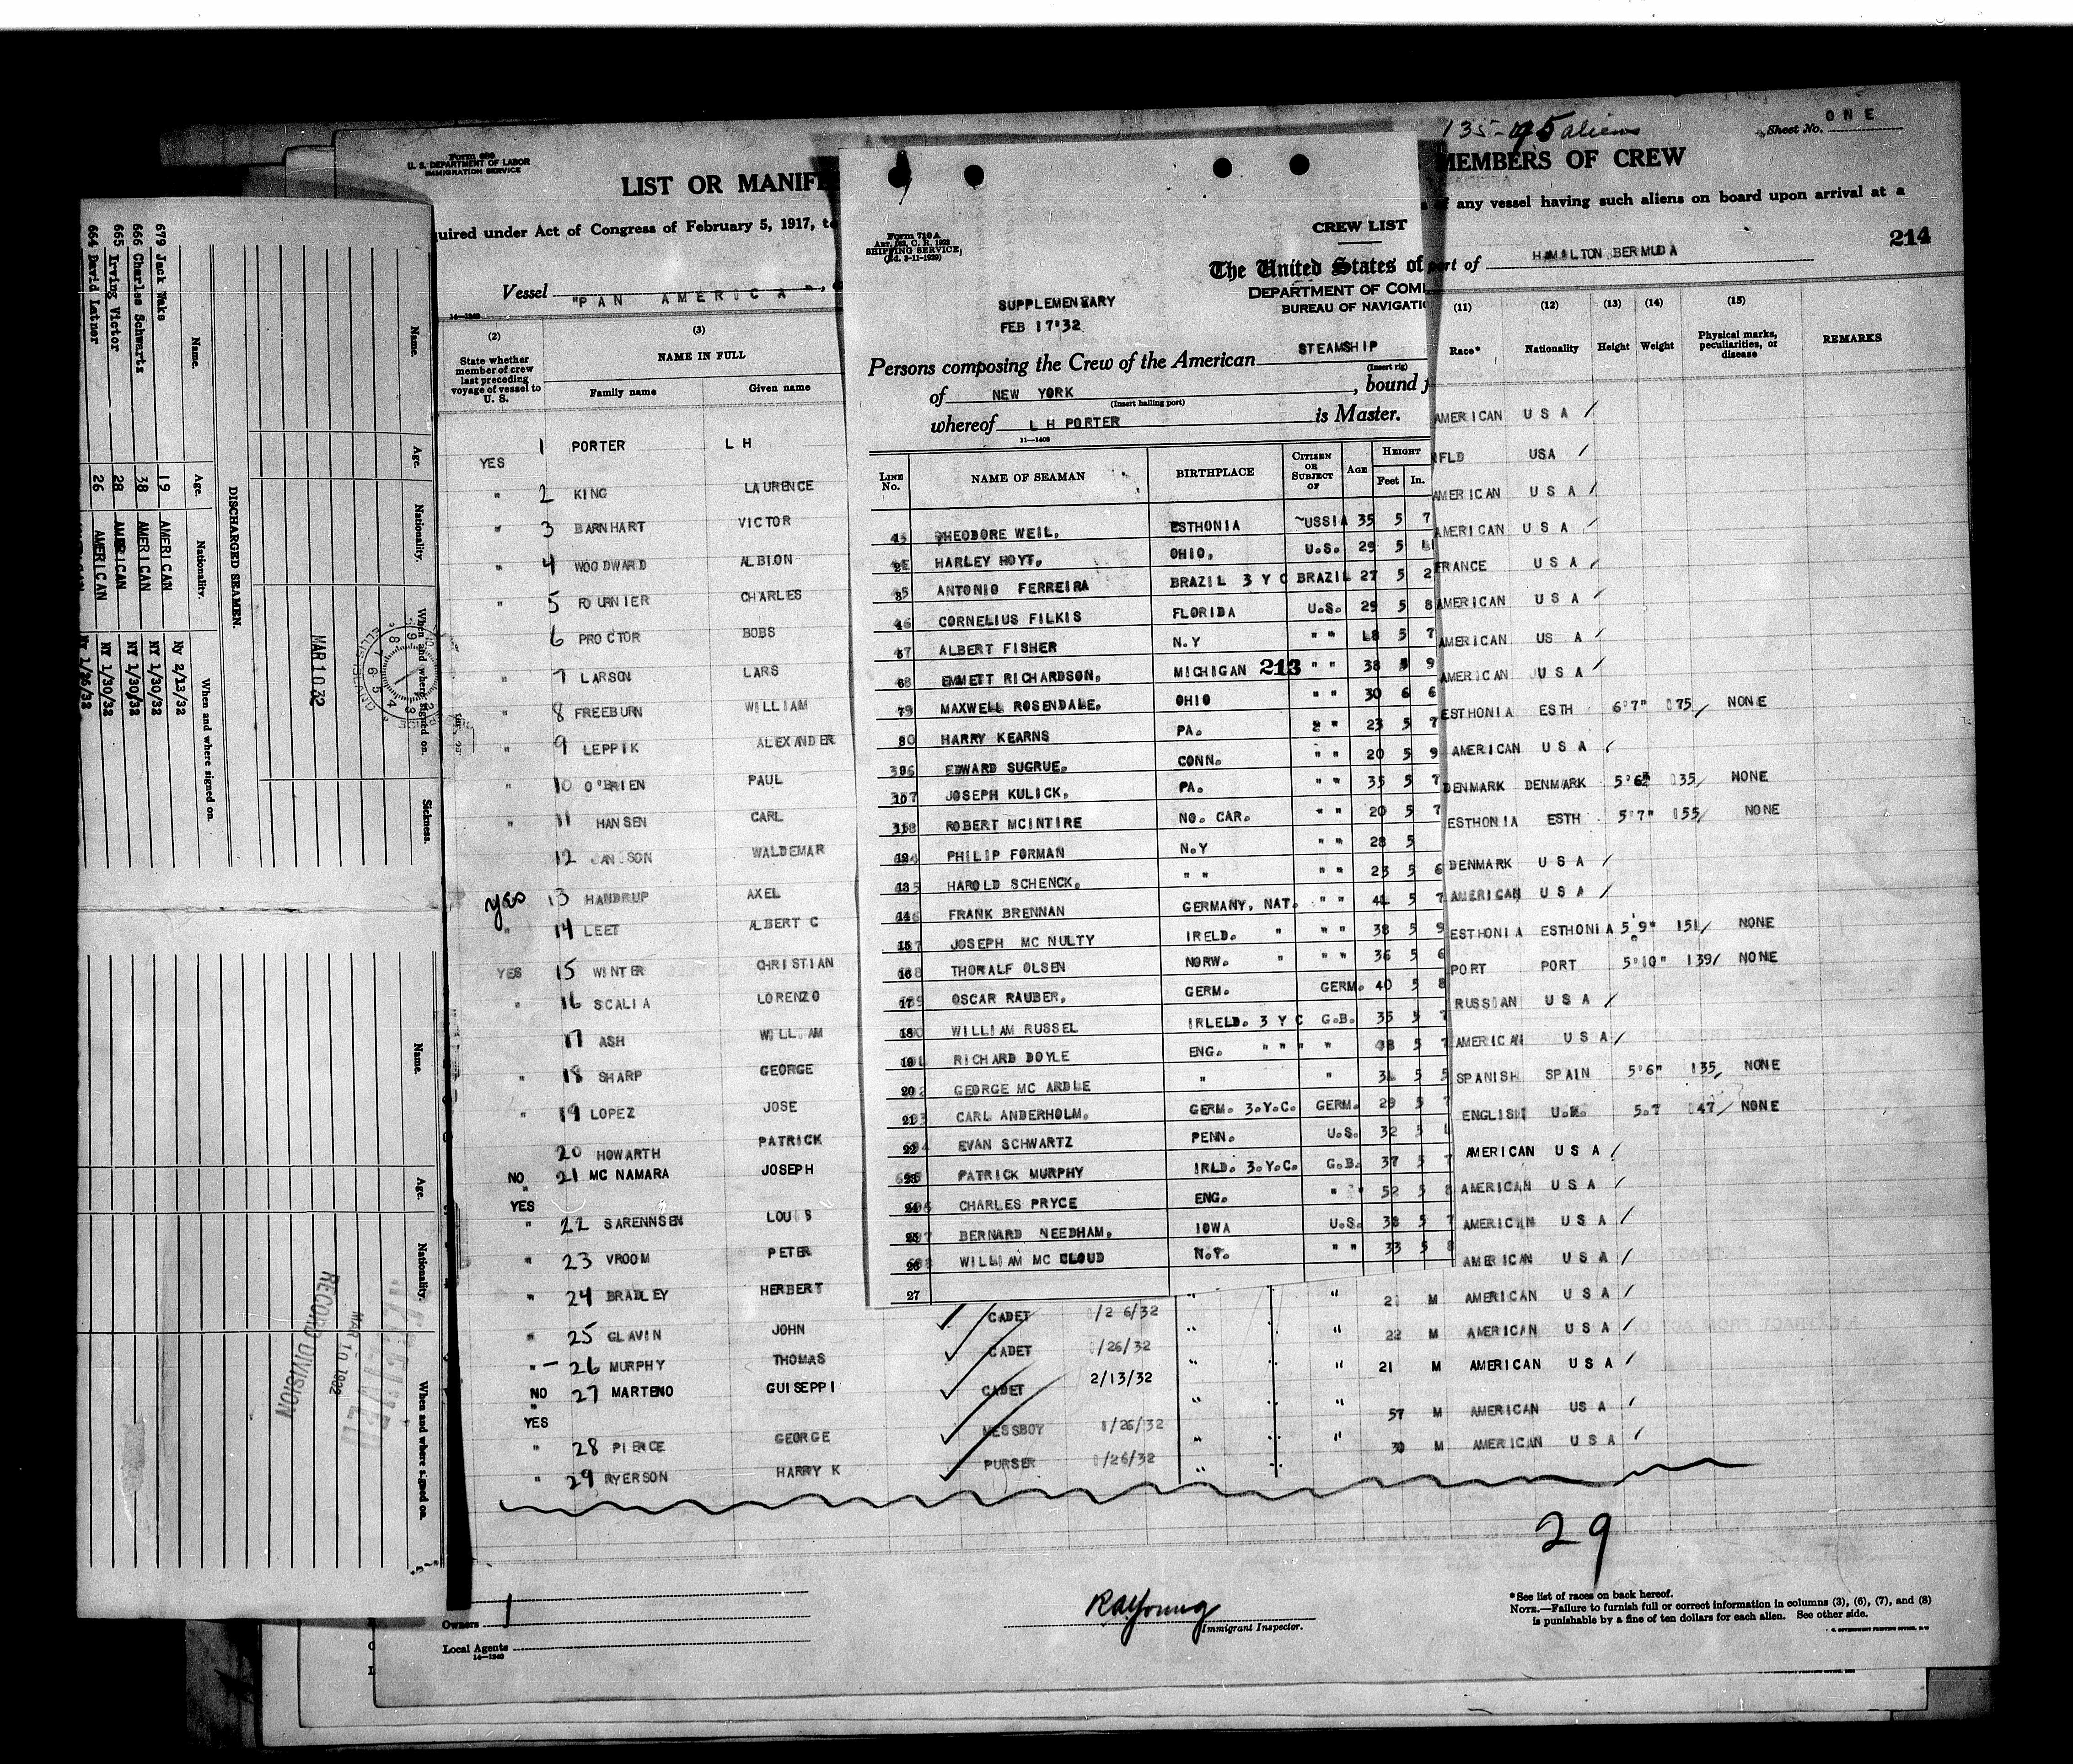 135-95 aliens
Sheet No. ONE
Form 689
U. S. DEPARTMENT OF LABOR
IMMIGRATION SERVICE
LIST OR MANIFE
MEMBERS OF CREW
quired under Act of Congress of February 5, 1917, to
of any vessel having such aliens on board upon arrival at a
214
Vessel "PAN AMERICA",
port of HAMILTON BERMUDA
14—1240
(2) (3)
State whether member of crew last preceding voyage of vessel to U. S.
NAME IN FULL
Family name Given name
(11) (12) (13) (14) (15)
Race* Nationality Height Weight Physical marks, peculiarities, or disease REMARKS
1 PORTER L H
YES
" 2 KING LAURENCE
" 3 BARNHART VICTOR
" 4 WOODWARD ALBION
" 5 FOURNIER CHARLES
6 PROCTOR BOBS
" 7 LARSON LARS
" 8 FREEBURN WILLIAM
" 9 LEPPIK ALEXANDER
" 10 O'BRIEN PAUL
" 11 HANSEN CARL
12 JANSSON WALDEMAR
yes 13 HANDRUP AXEL
" 14 LEET ALBERT C
YES 15 WINTER CHRISTIAN
" 16 SCALIA LORENZO
17 ASH WILLIAM
" 18 SHARP GEORGE
" 19 LOPEZ JOSE
20 HOWARTH PATRICK
NO 21 MC NAMARA JOSEPH
YES
" 22 SARENNSEN LOUIS
" 23 VROOM PETER
" 24 BRADLEY HERBERT
" 25 GLAVIN JOHN
"— 26 MURPHY THOMAS
NO 27 MARTENO GUISEPPI
YES
" 28 PIERCE GEORGE
" 29 RYERSON HARRY K
Form 710A
Art. 182, C. R. 1923
SHIPPING SERVICE,
(Ed. 3-11-1929)
CREW LIST
The United States of
DEPARTMENT OF COM
BUREAU OF NAVIGATIO
SUPPLEMENTARY
FEB 17'32
Persons composing the Crew of the American STEAMSHIP
(Insert rig)
of NEW YORK, bound f
(Insert hailing port)
whereof L H PORTER is Master.
11—1408
LINE No. NAME OF SEAMAN BIRTHPLACE CITIZEN OR SUBJECT OF AGE HEIGHT Feet In.
1 THEODORE WEIL, ESTHONIA ~USSIA 35 5 7
2 HARLEY HOYT, OHIO, U.S. 29 5
3 ANTONIO FERREIRA BRAZIL 3 Y C BRAZIL 27 5 2
4 CORNELIUS FILKIS FLORIDA U.S. 29 5 8
5 ALBERT FISHER N.Y " " 18 5 7
6 EMMETT RICHARDSON, MICHIGAN 213 " " 38 5 9
7 MAXWELL ROSENDALE, OHIO " " 30 6 6
8 HARRY KEARNS PA. " " 23 5 7
9 EDWARD SUGRUE, CONN. " " 20 5 9
10 JOSEPH KULICK, PA. " " 35 5 7
11 ROBERT MCINTIRE NO. CAR. " " 20 5 7
12 PHILIP FORMAN N.Y " " 28 5
13 HAROLD SCHENCK, " " " " 23 5 6
14 FRANK BRENNAN GERMANY, NAT. " " 41 5 7
15 JOSEPH MC NULTY IRELD. " " " 38 5 9
16 THORALF OLSEN NORW. " " " 36 5 6
17 OSCAR RAUBER, GERM. GERM. 40 5 8
18 WILLIAM RUSSEL IRLELD. 3 Y C G.B. 35 5 7
19 RICHARD DOYLE ENG. " " " " 38 5 7
20 GEORGE MC ARDLE " " 31 5 5
21 CARL ANDERHOLM, GERM. 3.Y.C. GERM. 29 5 7
22 EVAN SCHWARTZ PENN. U.S. 32 5
23 PATRICK MURPHY IRLD. 3.Y.C. G.B. 37 5 7
24 CHARLES PRYCE ENG. " " 52 5 8
25 BERNARD NEEDHAM, IOWA U.S. 38 5 7
26 WILLIAM MC CLOUD N.Y. " " 33 5 8
27
AMERICAN U S A /
NFLD USA
AMERICAN U S A /
AMERICAN U S A /
FRANCE U S A /
AMERICAN U S A /
AMERICAN US A /
AMERICAN U S A /
ESTHONIA ESTH 6'7" 175/ NONE
AMERICAN U S A /
DENMARK DENMARK 5'6" 135/ NONE
ESTHONIA ESTH 5'7" 155/ NONE
DENMARK U S A /
AMERICAN U S A /
ESTHONIA ESTHONIA 5'9" 151/ NONE
PORT PORT 5'10" 139/ NONE
RUSSIAN U S A /
AMERICAN U S A /
SPANISH SPAIN 5'6" 135/ NONE
ENGLISH U.K. 5.7 147/ NONE
AMERICAN U S A /
AMERICAN U S A /
AMERICAN U S A /
AMERICAN U S A /
CADET 1/26/32 " " " 21 M AMERICAN U S A /
CADET 1/26/32 " " " 22 M AMERICAN U S A /
CADET 2/13/32 " " " 21 M AMERICAN U S A /
MESSBOY 1/26/32 " " " 57 M AMERICAN US A /
PURSER 1/26/32 " " " 30 M AMERICAN U S A /
29
Owners
Local Agents
14—1240
RAYoung
Immigrant Inspector.
*See list of races on back hereof.
NOTE.—Failure to furnish full or correct information in columns (3), (6), (7), and (8)
is punishable by a fine of ten dollars for each alien. See other side.
DISCHARGED SEAMEN.
Name. Age. Nationality. When and where signed on.
679 Jack Waks 19 AMERICAN Ny 2/13/32
666 Charles Schwartz 38 AMERICAN NY 1/30/32
665 Irving Victor 28 AMERICAN NY 1/30/32
664 David Latner 26 AMERICAN NY 1/30/32
NY 1/26/32
Name. Age. Nationality. When and where signed on. Sickness.
MAR 10 32
Name. Age. Nationality. When and where signed on.
RECEIVED
MAR 10 1932
RECORD DIVISION